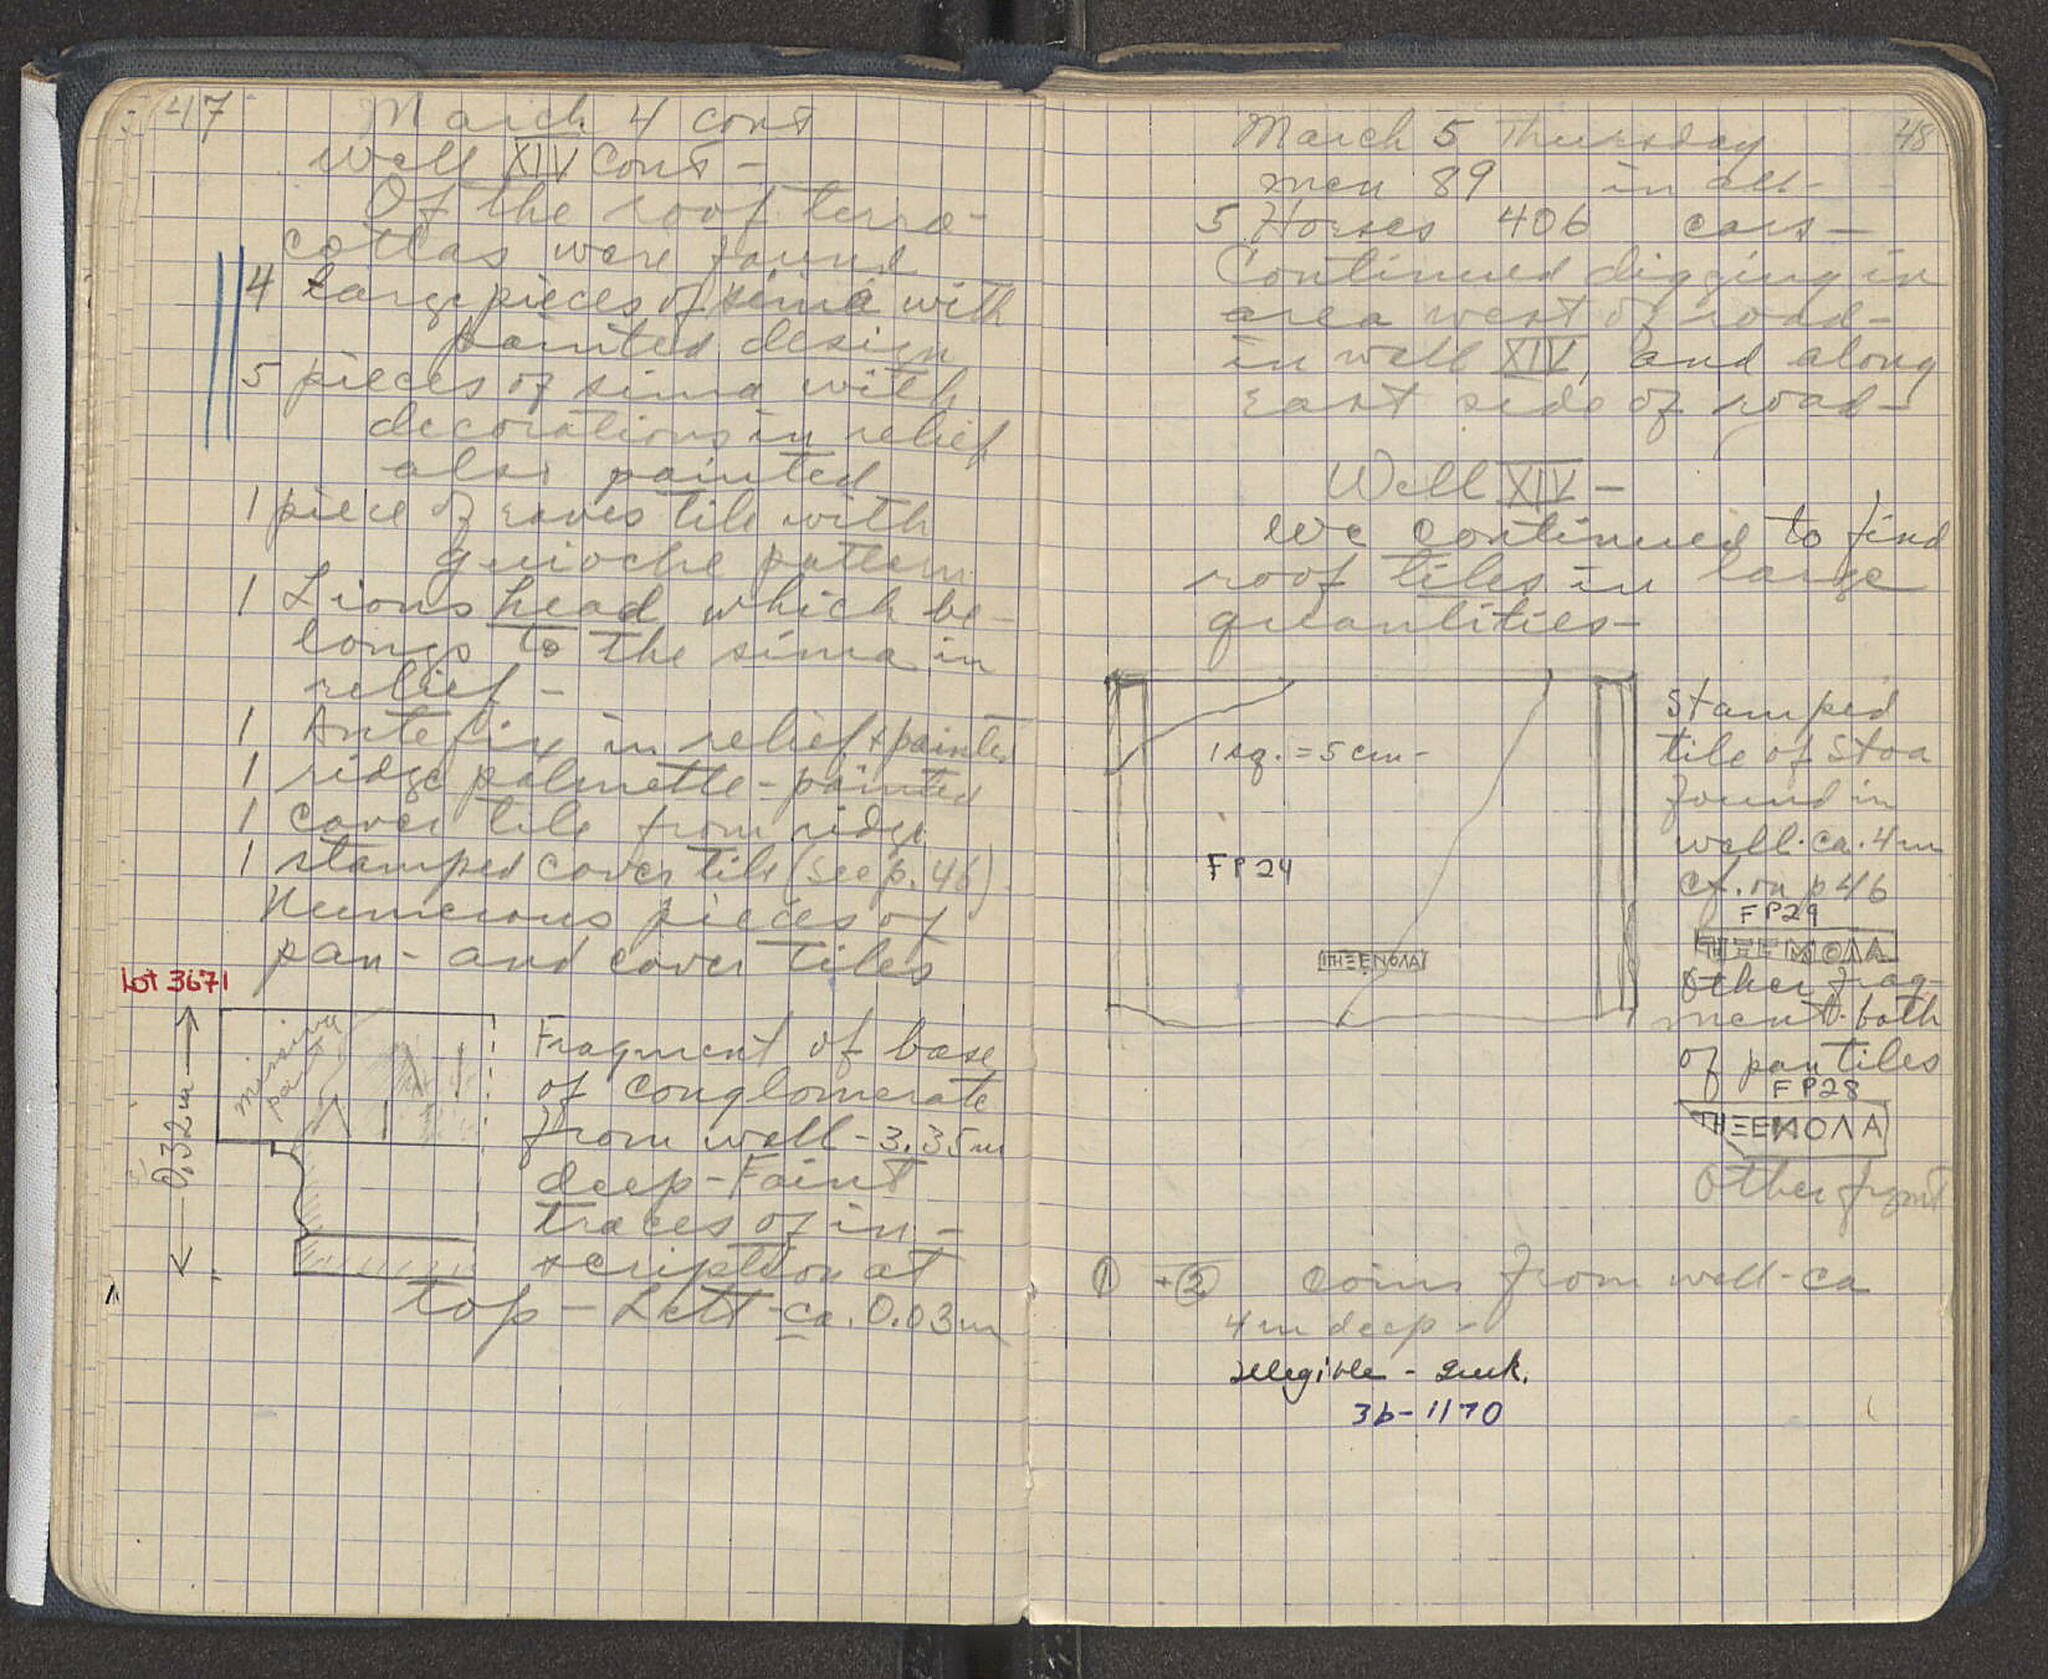 47
March 4 cont
Well XIV Cont -
Of the roof terra-
cottas were found
4 Large pieces of sima with
painted design
5 pieces of sima with
decorations in relief
also painted
1 piece of eaves tile with
guioche pattern
1 Lions head which be-
longs to the sima in
relief -
1 Antefix in relief + painted
1 ridge palmette - painted
1 cover tile from ridge
1 stamped cover tile (see p. 46).
Numerous pieces of
pan- and cover tiles
Lot 3671
missing
part
0.32m
Fragment of base
of conglomerate
from well - 3.35m
deep - Faint
traces of in-
scription at
top - Lett - ca. 0.03m
48
March 5 Thursday
men 89 in all -
5 Horses 406 cars -
Continued digging in
area west of road -
in well XIV, and along
East side of road -
Well XIV -
We continued to find
roof tiles in large
quantities -
1 sq. = 5 cm -
FP 24
ΠΗΞΕΝΟΛΑ
Stamped
tile of Stoa
found in
well. ca. 4m
cf. on p 46
FP29
ΠΗΞΕΝΟΛΑ
Other frag-
ment. both
of pan tiles
FP28
ΠΗΞΕΝΟΛΑ
Other frgmt
1 + 2 Coins from well - ca
4m deep -
Illegible - Greek.
36 - 1170